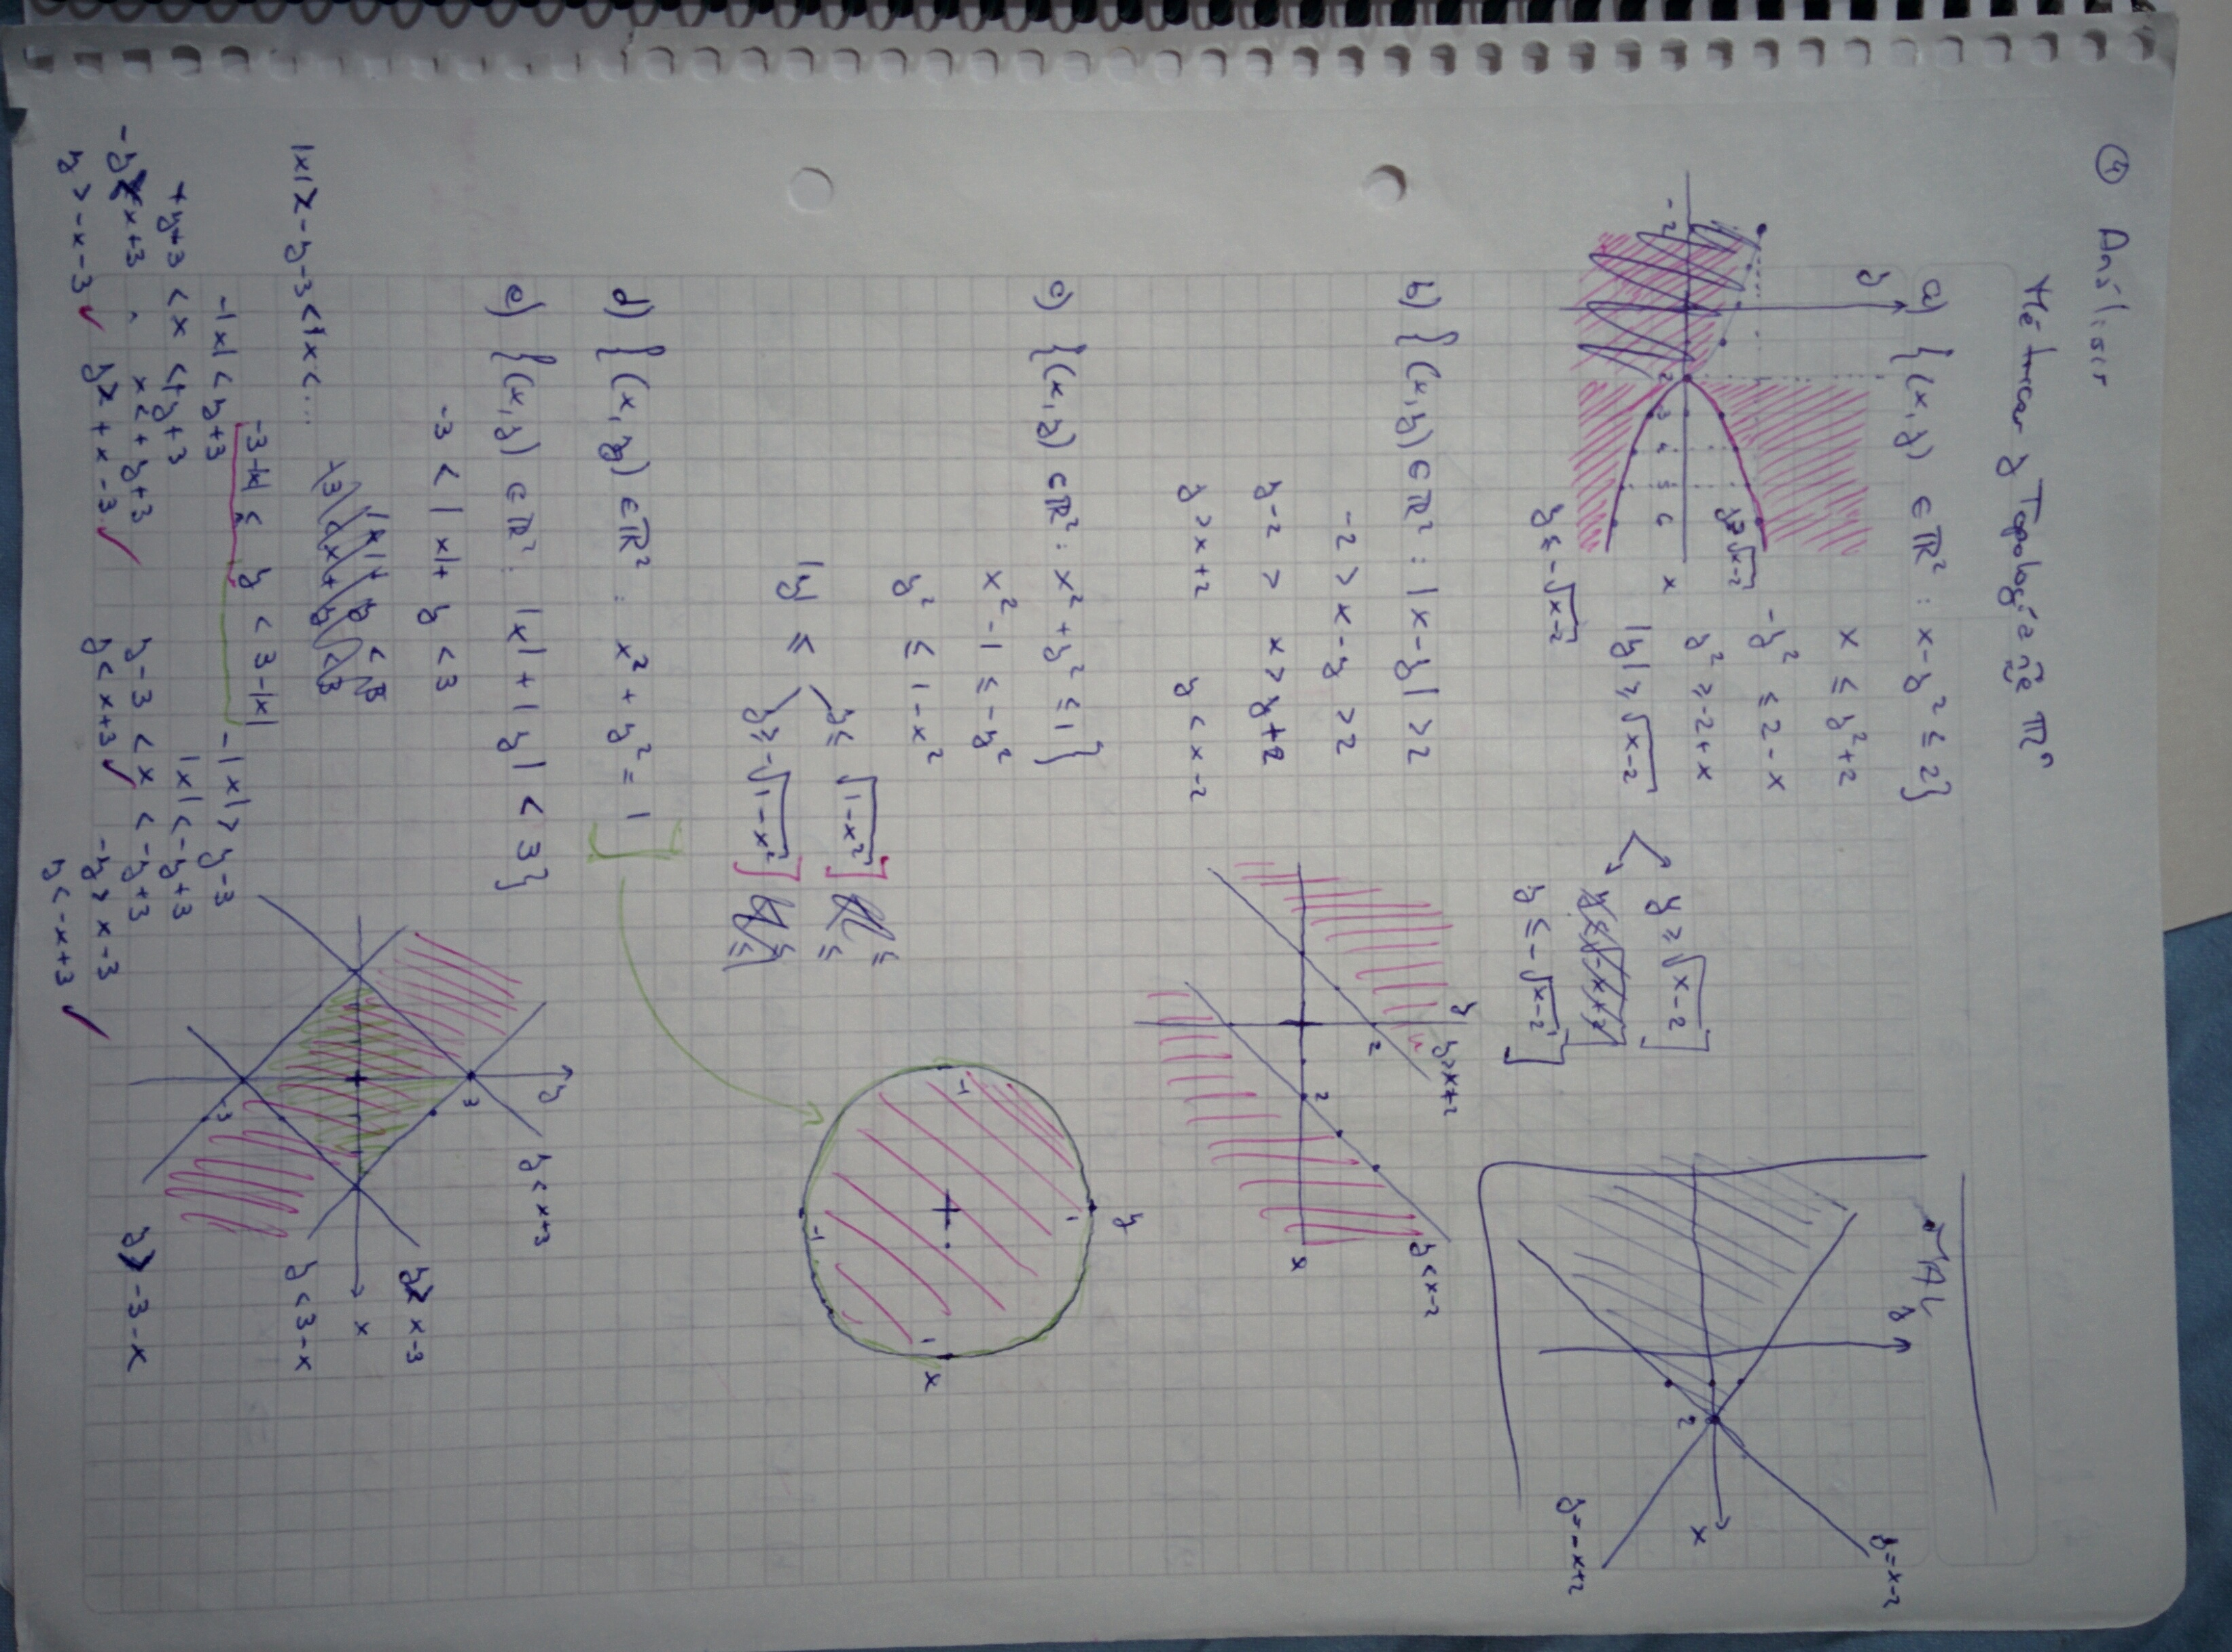 ④ Análisis
Métricas y Topología de ℝⁿ
a) {(x,y) ∈ ℝ² : x-y² ≤ 2}
x ≤ y²+2
-y² ≤ 2-x
y² ≥ -2+x
|y| ≥ √(x-2)
y ≥ √(x-2)]
y ≤ -√(x-2)]
y
y ≥ √(x-2)
-2 2 3 4 5 6 x
y ≤ -√(x-2)
MAL
y
y=x-2
x
2
y=-x+2
b) {(x,y) ∈ ℝ² : |x-y| > 2
-2 > x-y > 2
y-2 > x > y+2
y > x+2 y < x-2
y
y>x+2
y<x-2
2
2
x
c) {(x,y) ∈ ℝ² : x²+y² ≤ 1}
x²-1 ≤ -y²
y² ≤ 1-x²
|y| ≤
y ≤ √(1-x²)]
y ≥ -√(1-x²)]
y
1
-1
1 x
-1
d) {(x,y) ∈ ℝ² : x²+y² = 1}
e) {(x,y) ∈ ℝ² : |x|+|y| < 3}
-3 < |x|+y < 3
-3-|x| < y < 3-|x|
-|x| < y+3
y > -x-3 ✓
x < +y+3
y > +x-3 ✓
-|x| > y-3
|x| < -y+3
y-3 < x < -y+3
y < x+3 ✓
-y > x-3
y < -x+3 ✓
y
y < x+3
3
y > x-3
x
y < 3-x
-3
y > -3-x